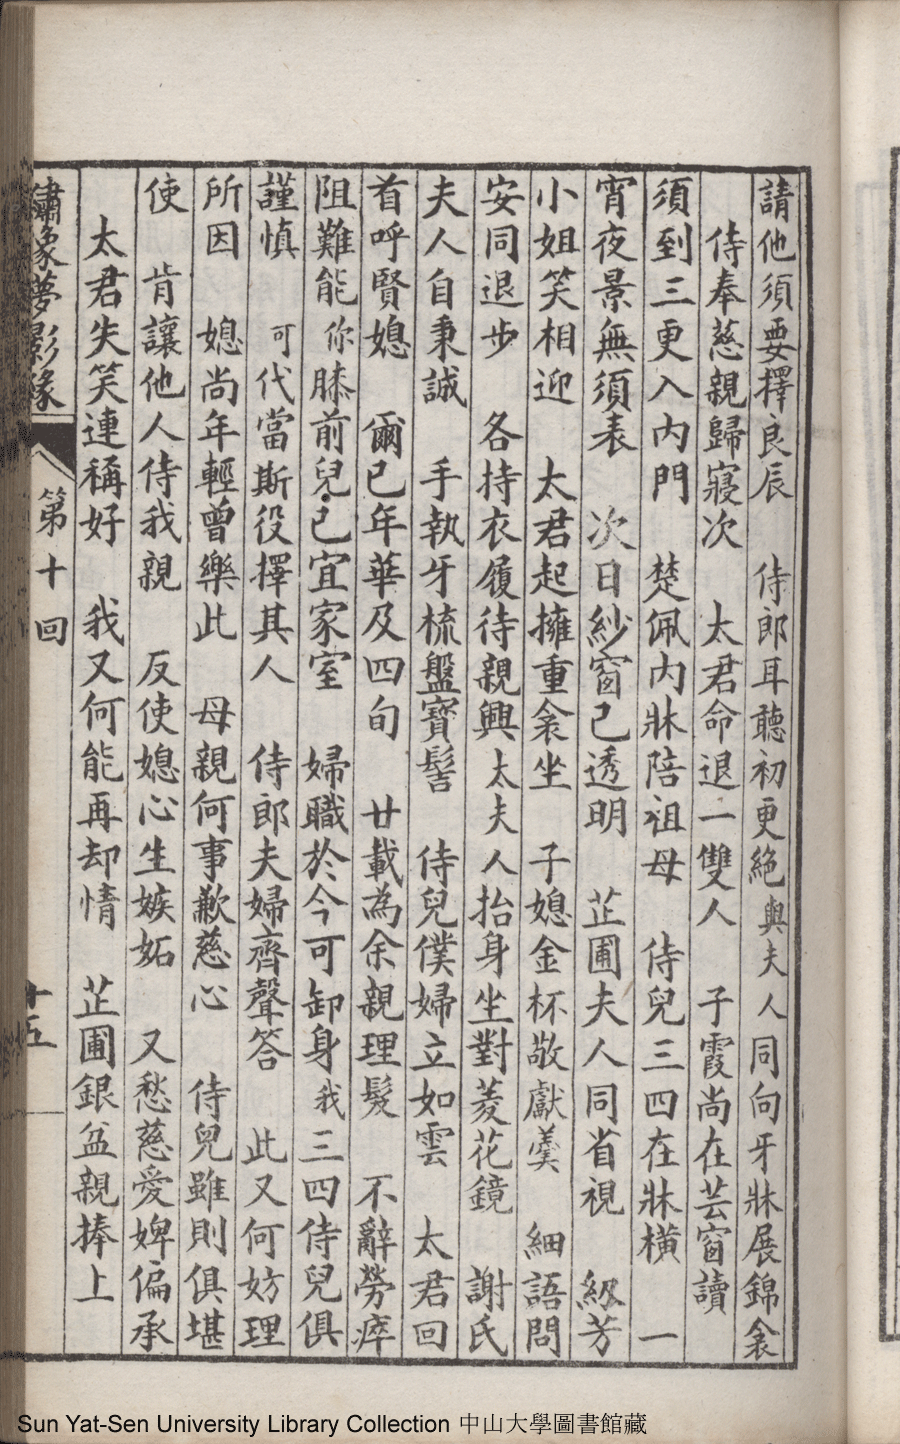 請他須要擇良辰　侍郎耳聽初更絕與夫人同向牙牀展錦衾
侍奉慈親歸寢次　太君命退一雙人　子霞尚在芸窗讀
須到三更入內門　楚佩內牀陪祖母　侍兒三四在牀橫　一
宵夜景無須表　次日紗窗已透明　芷圃夫人同省視　紉芳
小姐笑相迎　太君起擁重衾坐　子媳金杯敬獻羹　細語問
安同退步　各持衣履待親興太夫人抬身坐對菱花鏡　謝氏
夫人自秉誠　手執牙梳盤寶髻　侍兒僕婦立如雲　太君回
首呼賢媳　爾已年華及四旬　廿載為余親理髮　不辭勞瘁
阻難能你膝前兒已宜家室　婦職於今可卸身我三四侍兒俱
謹慎　可代當斯役擇其人　侍郎夫婦齊聲答　此又何妨理
所因　媳尚年輕曾樂此　母親何事歉慈心　侍兒雖則俱堪
使　肯讓他人侍我親　反使媳心生嫉妬　又愁慈愛婢偏承
太君失笑連稱好　我又何能再却情　芷圃銀盆親捧上
繡像夢影緣　第十回　十五
Sun Yat-Sen University Library Collection 中山大學圖書館藏